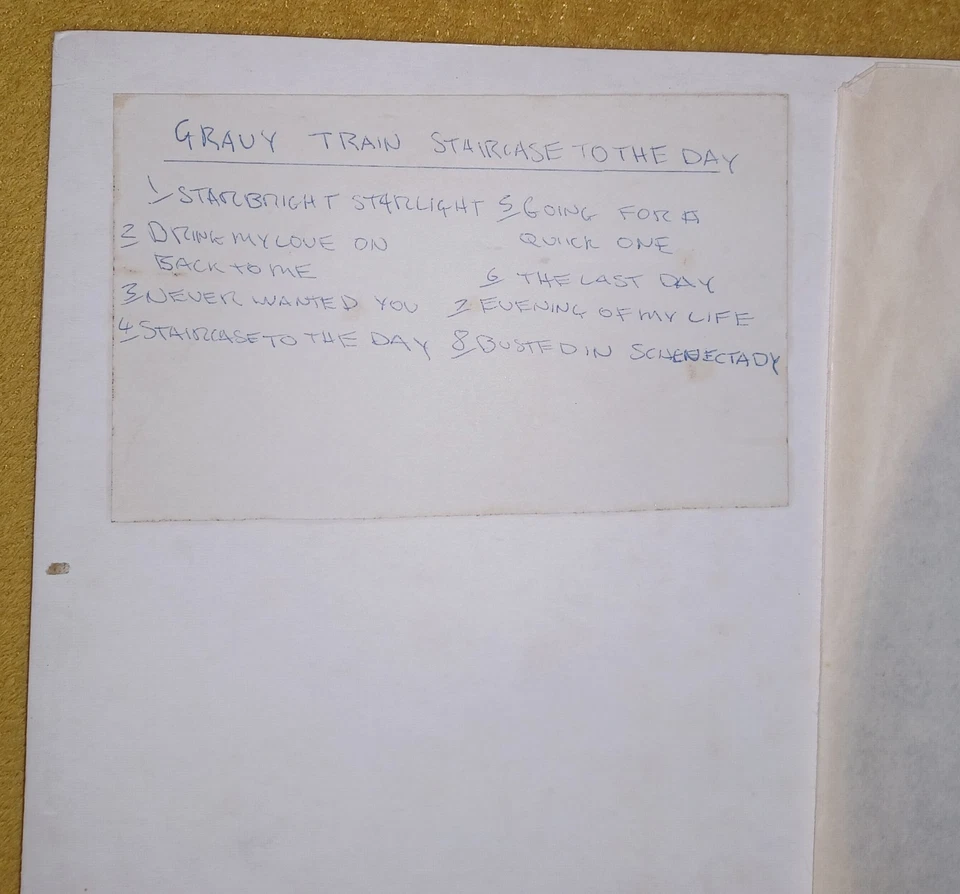 GRAVY TRAIN STAIRCASE TO THE DAY
1 STARBRIGHT STARLIGHT
2 BRING MY LOVE ON
BACK TO ME
3 NEVER WANTED YOU
4 STAIRCASE TO THE DAY
5 GOING FOR A
QUICK ONE
6 THE LAST DAY
7 EVENING OF MY LIFE
8 BUSTED IN SCHENECTADY